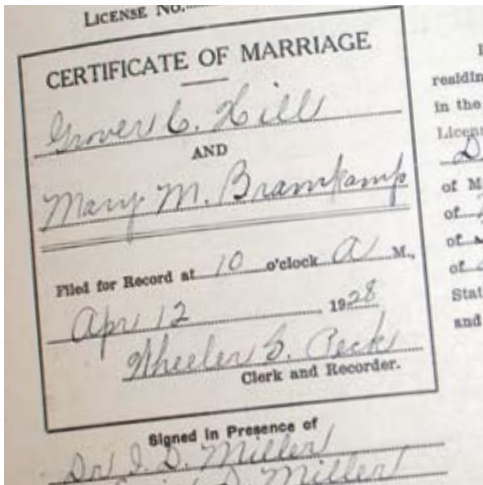 LICENSE No.
CERTIFICATE OF MARRIAGE
Grover C. Hill
AND
Mary M. Bramkamp
Filed for Record at 10 o'clock A M.,
Apr 12 1928
Wheeler S. Peck
Clerk and Recorder.
Signed in Presence of
Dr J. D. Miller
D Miller
residin
in the
Licens
D
of M
of
of
of
Stat
and